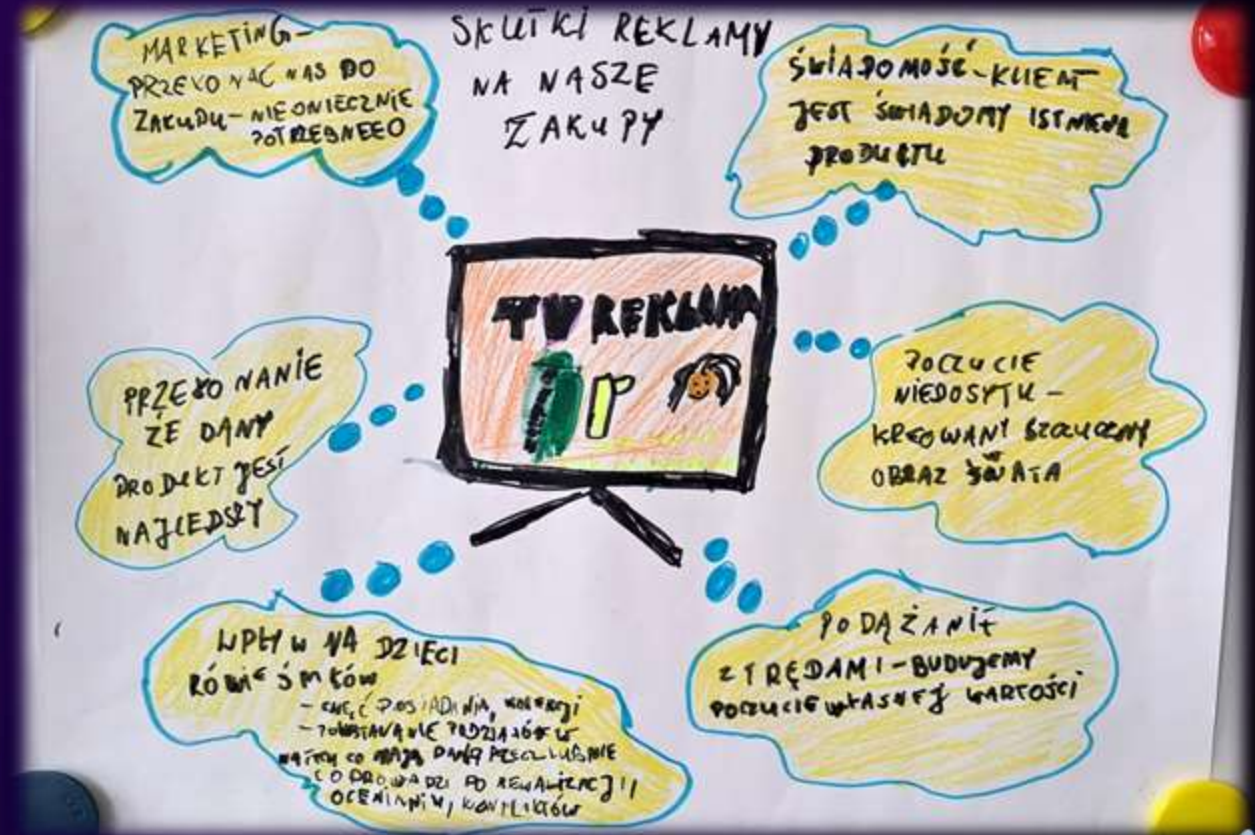 SKUTKI REKLAMY
NA NASZE
ZAKUPY
MARKETING-
PRZEKONAĆ NAS DO
ZAKUPU-NIEKONIECZNIE
POTRZEBNEGO
ŚWIADOMOŚĆ-KLIENT
JEST ŚWIADOMY ISTNIENIA
PRODUKTU
TV REKLAMA
PRZEKONANIE
ZE DANY
PRODUKT JEST
NAJLEPSZY
POCZUCIE
NIEDOSYTU-
KREOWANY SZTUCZNY
OBRAZ ŚWIATA
WPŁYW NA DZIECI
RÓWIEŚNIKÓW
- CHĘĆ POSIADANIA, KOLEKCJI
- POWSTAWANIE PODZIAŁÓW
NA TYCH CO MAJĄ DANĄ RZECZ LUB NIE
CO PROWADZI DO REWALIZACJI,
OCENIANIA, KONFLIKTÓW
PODĄŻANIE
Z TRĘDAMI-BUDUJEMY
POCZUCIE WŁASNEJ WARTOŚCI